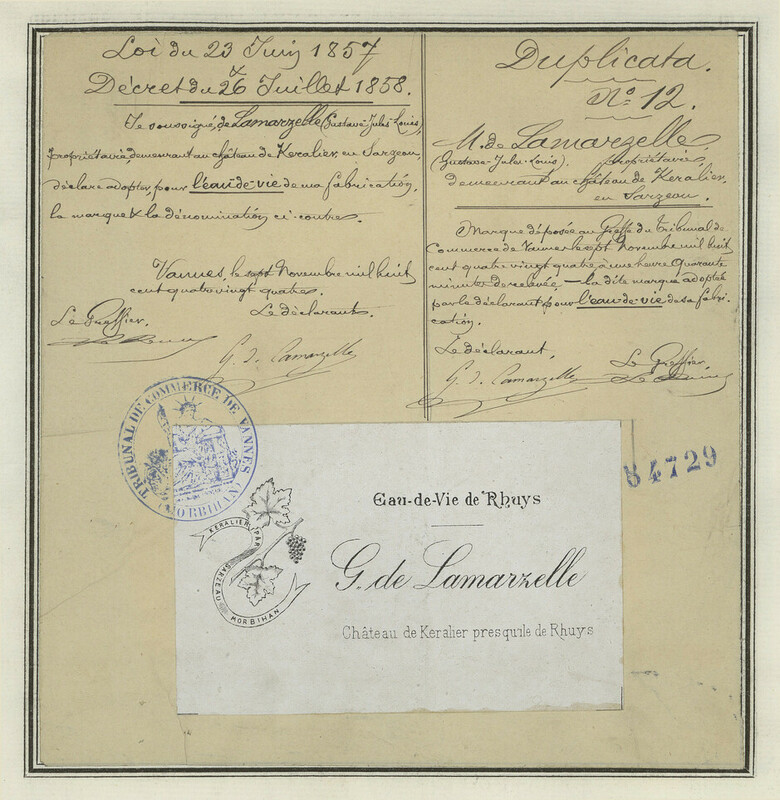 Loi du 23 Juin 1857
Décret du 26 Juillet 1858.
Je soussigné, de Lamarzelle (Gustave-Jules-Louis),
propriétaire, demeurant au château de Keralier, en Sarzeau,
déclare adopter, pour l'eau-de-vie de ma fabrication,
la marque & la dénomination ci-contre.
Vannes, le sept Novembre mil huit
cent quatre vingt quatre.
Le Greffier,
Le déclarant,
G. de Lamarzelle
Duplicata.
No. 12.
M. de Lamarzelle,
(Gustave-Jules-Louis), propriétaire,
demeurant au château de Keralier,
en Sarzeau.
Marque déposée au Greffe du tribunal de
Commerce de Vannes le sept Novembre mil huit
cent quatre vingt quatre à une heure quarante
minutes de relevée, — la dite marque adoptée
par le déclarant pour l'eau-de-vie de sa fabri-
cation.
Le déclarant,
Le Greffier
G. de Lamarzelle
TRIBUNAL DE COMMERCE DE VANNES
(MORBIHAN)
84729
KERALIER PAR
SARZEAU
MORBIHAN
Eau-de-Vie de Rhuys
G. de Lamarzelle
Château de Keralier presqu'ile de Rhuys